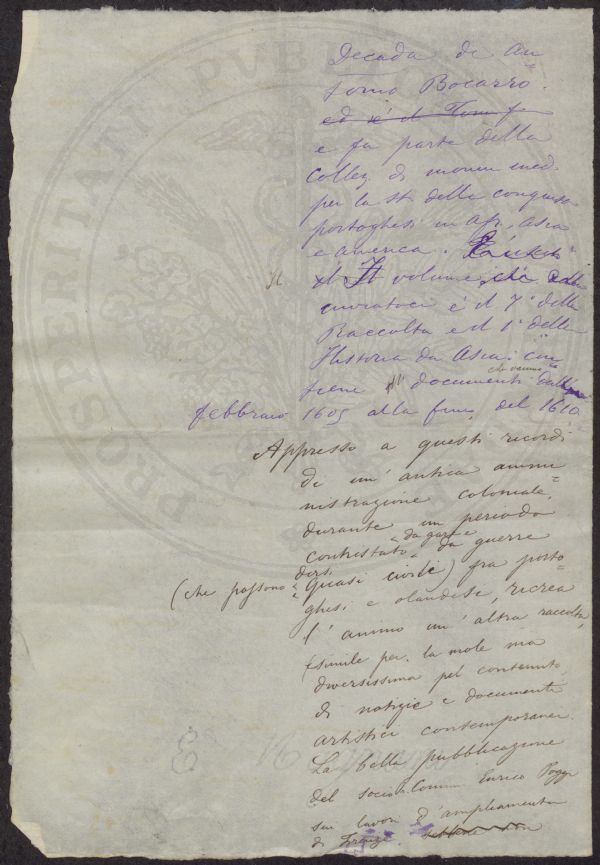 Decada de An=
tonio Bocarro.
ed è il Tomo
e fa parte della
Collez di monum ined.
per la st. delle conquiste
portoghesi in Af., Asia
e America.
Il volume che
è il 7° della
Raccolta e il 1° della
Historia da Asia: con
tiene documenti che vanno dal
febbraio 1605 alla fine del 1610.
Appresso a questi ricordi
di un' antica ammi
nistrazione coloniale,
durante un periodo
contrastato da gare e da guerre
(che possono dirsi quasi civili) fra porto=
ghesi e olandesi, ricrea
l' animo un' altra raccolta,
(simile per la mole ma
diversissima pel contenuto
di notizie e documenti
artistici contemporanei.
La bella pubblicazione
del socio Comm. Enrico Poggi
sui lavori d' ampliamento
di Firenze.
PROSPERITATI PUBLICAE